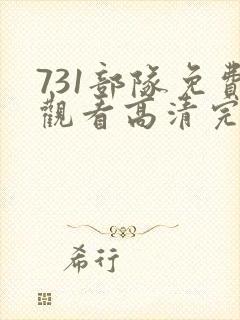 731部隊免費
觀看高清完
希行